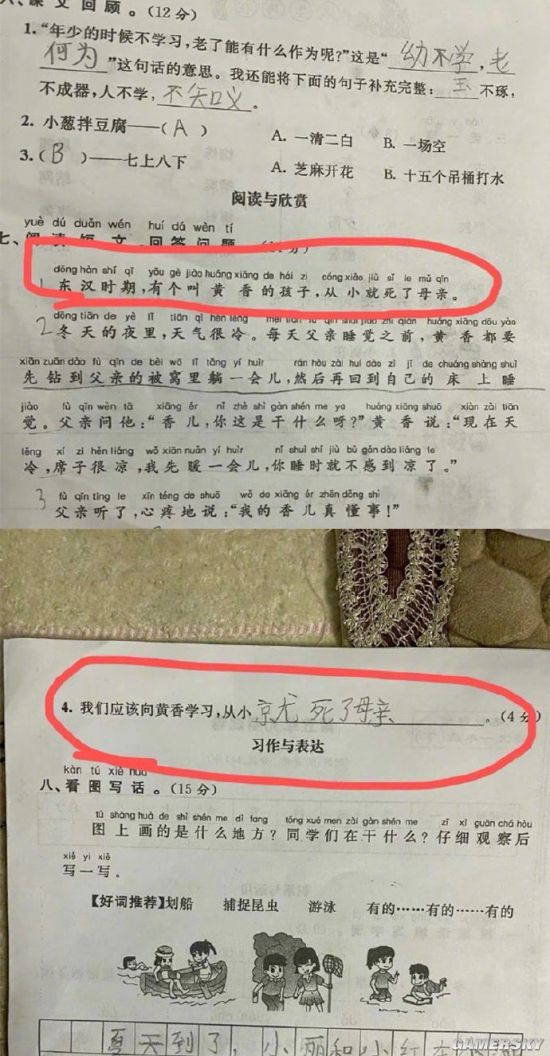 六、课文回顾。(12分)
1."年少的时候不学习,老了能有什么作为呢?"这是"幼不学,老
何为"这句话的意思。我还能将下面的句子补充完整:玉不琢,
不成器,人不学,不知义。
2. 小葱拌豆腐——(A) A. 一清二白 B. 一场空
3.(B)——七上八下 A. 芝麻开花 B. 十五个吊桶打水
阅读与欣赏
yuè dú duǎn wén huí dá wèn tí
七、阅读短文,回答问题。
dōng hàn shí qī yǒu gè jiào huáng xiāng de hái zi cóng xiǎo jiù sǐ le mǔ qīn
1 东汉时期,有个叫黄香的孩子,从小就死了母亲。
dōng tiān de yè lǐ tiān qì hěn lěng měi tiān fù qīn shuì jiào zhī qián huáng xiāng dōu yào
2 冬天的夜里,天气很冷。每天父亲睡觉之前,黄香都要
xiān zuān dào fù qīn de bèi wō lǐ tǎng yí huìr rán hòu zài huí dào zì jǐ de chuáng shàng shuì
先钻到父亲的被窝里躺一会儿,然后再回到自己的床上睡
jiào fù qīn wèn tā xiāng ér nǐ zhè shì gàn shén me ya huáng xiāng shuō xiàn zài tiān
觉。父亲问他:"香儿,你这是干什么呀?"黄香说:"现在天
lěng xí zi hěn liáng wǒ xiān nuǎn yí huìr nǐ shuì shí jiù bù gǎn dào liáng le
冷,席子很凉,我先暖一会儿,你睡时就不感到凉了。"
fù qīn tīng le xīn téng de shuō wǒ de xiāng ér zhēn dǒng shì
3 父亲听了,心疼地说:"我的香儿真懂事!"
4. 我们应该向黄香学习,从小京尤死了母亲。(4分)
习作与表达
kàn tú xiě huà
八、看图写话。(15分)
tú shàng huà de shì shén me dì fang tóng xué men zài gàn shén me zǐ xì guān chá hòu
图上画的是什么地方?同学们在干什么?仔细观察后
xiě yi xiě
写一写。
【好词推荐】划船 捕捉昆虫 游泳 有的……有的……有的
夏天到了,小丽和小红在
GAMERSKY